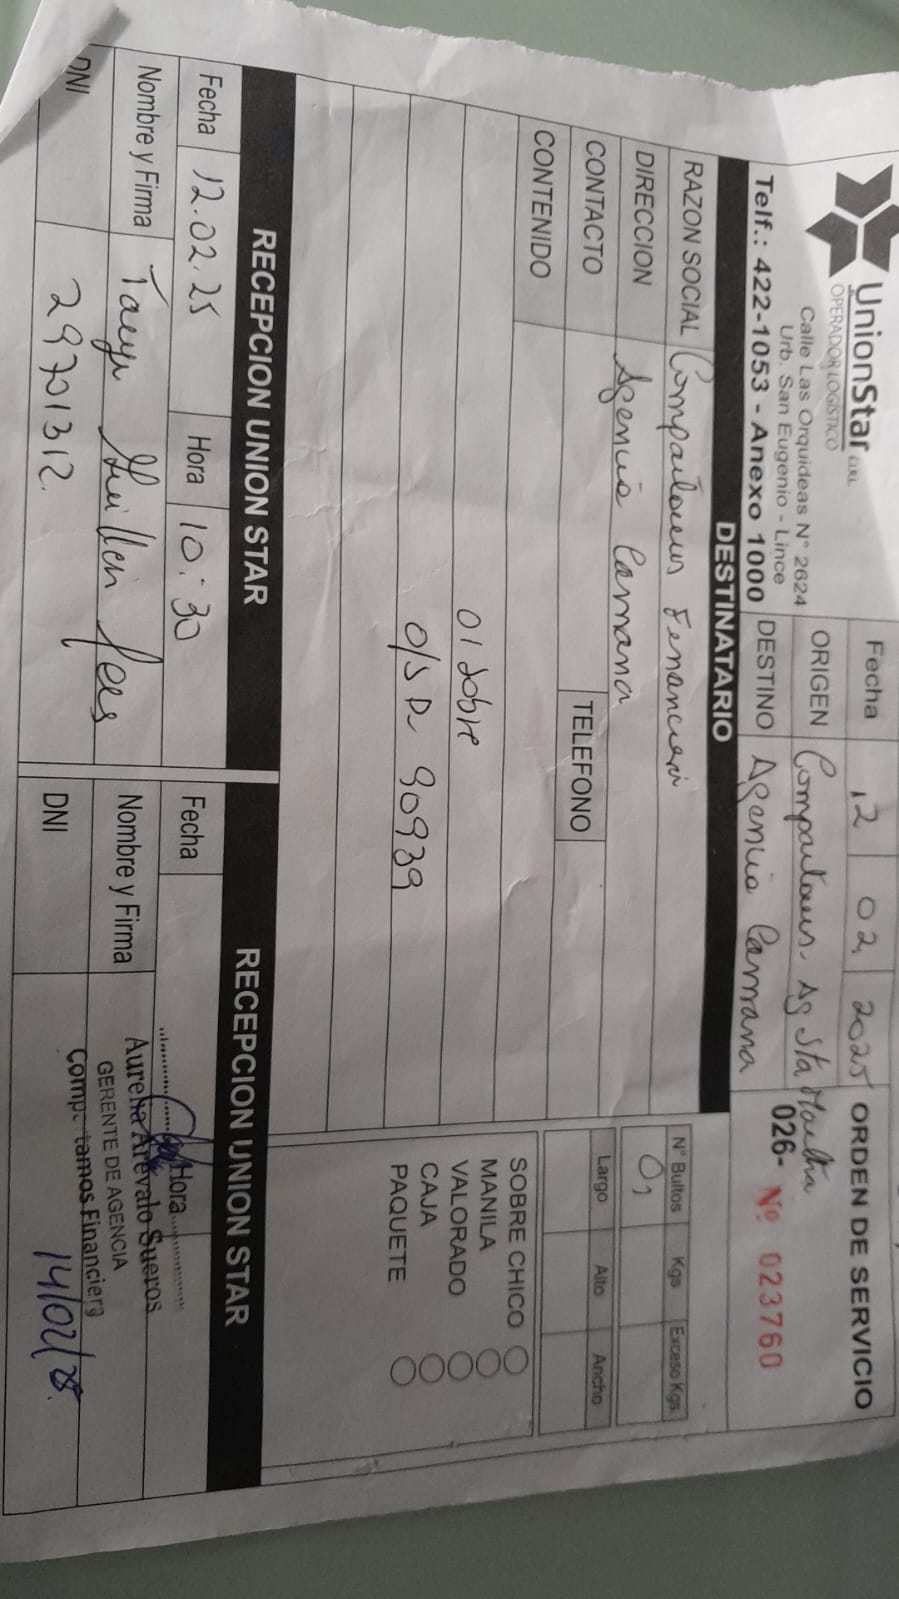 UnionStar E.I.R.L.
OPERADOR LOGÍSTICO
Calle Las Orquideas N° 2624
Urb. San Eugenio - Lince
Telf.: 422-1053 - Anexo 1000
Fecha 12 02 2025
ORIGEN Compartamos Ag Sta Martha
DESTINO Agencia Camana
ORDEN DE SERVICIO
026- Nº 023760
DESTINATARIO
RAZON SOCIAL Compartamos Financiera
DIRECCION Agencia Camana
CONTACTO TELEFONO
CONTENIDO
01 sobre
O/S D- 90939
N° Bultos Kgs Exceso Kgs.
01
Largo Alto Ancho
SOBRE CHICO
MANILA
VALORADO
CAJA
PAQUETE
RECEPCION UNION STAR
Fecha 12.02.25 Hora 10:30
Nombre y Firma Guillen
DNI 29701312
RECEPCION UNION STAR
Fecha Hora
Nombre y Firma Aurelia Arévalo Sueros
GERENTE DE AGENCIA
Compartamos Financiera
DNI 14/02/25.